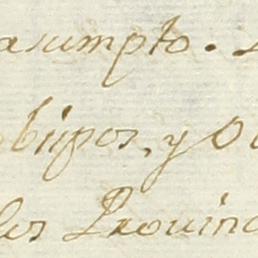 asumpto.
obispos, y O
los Prouinc